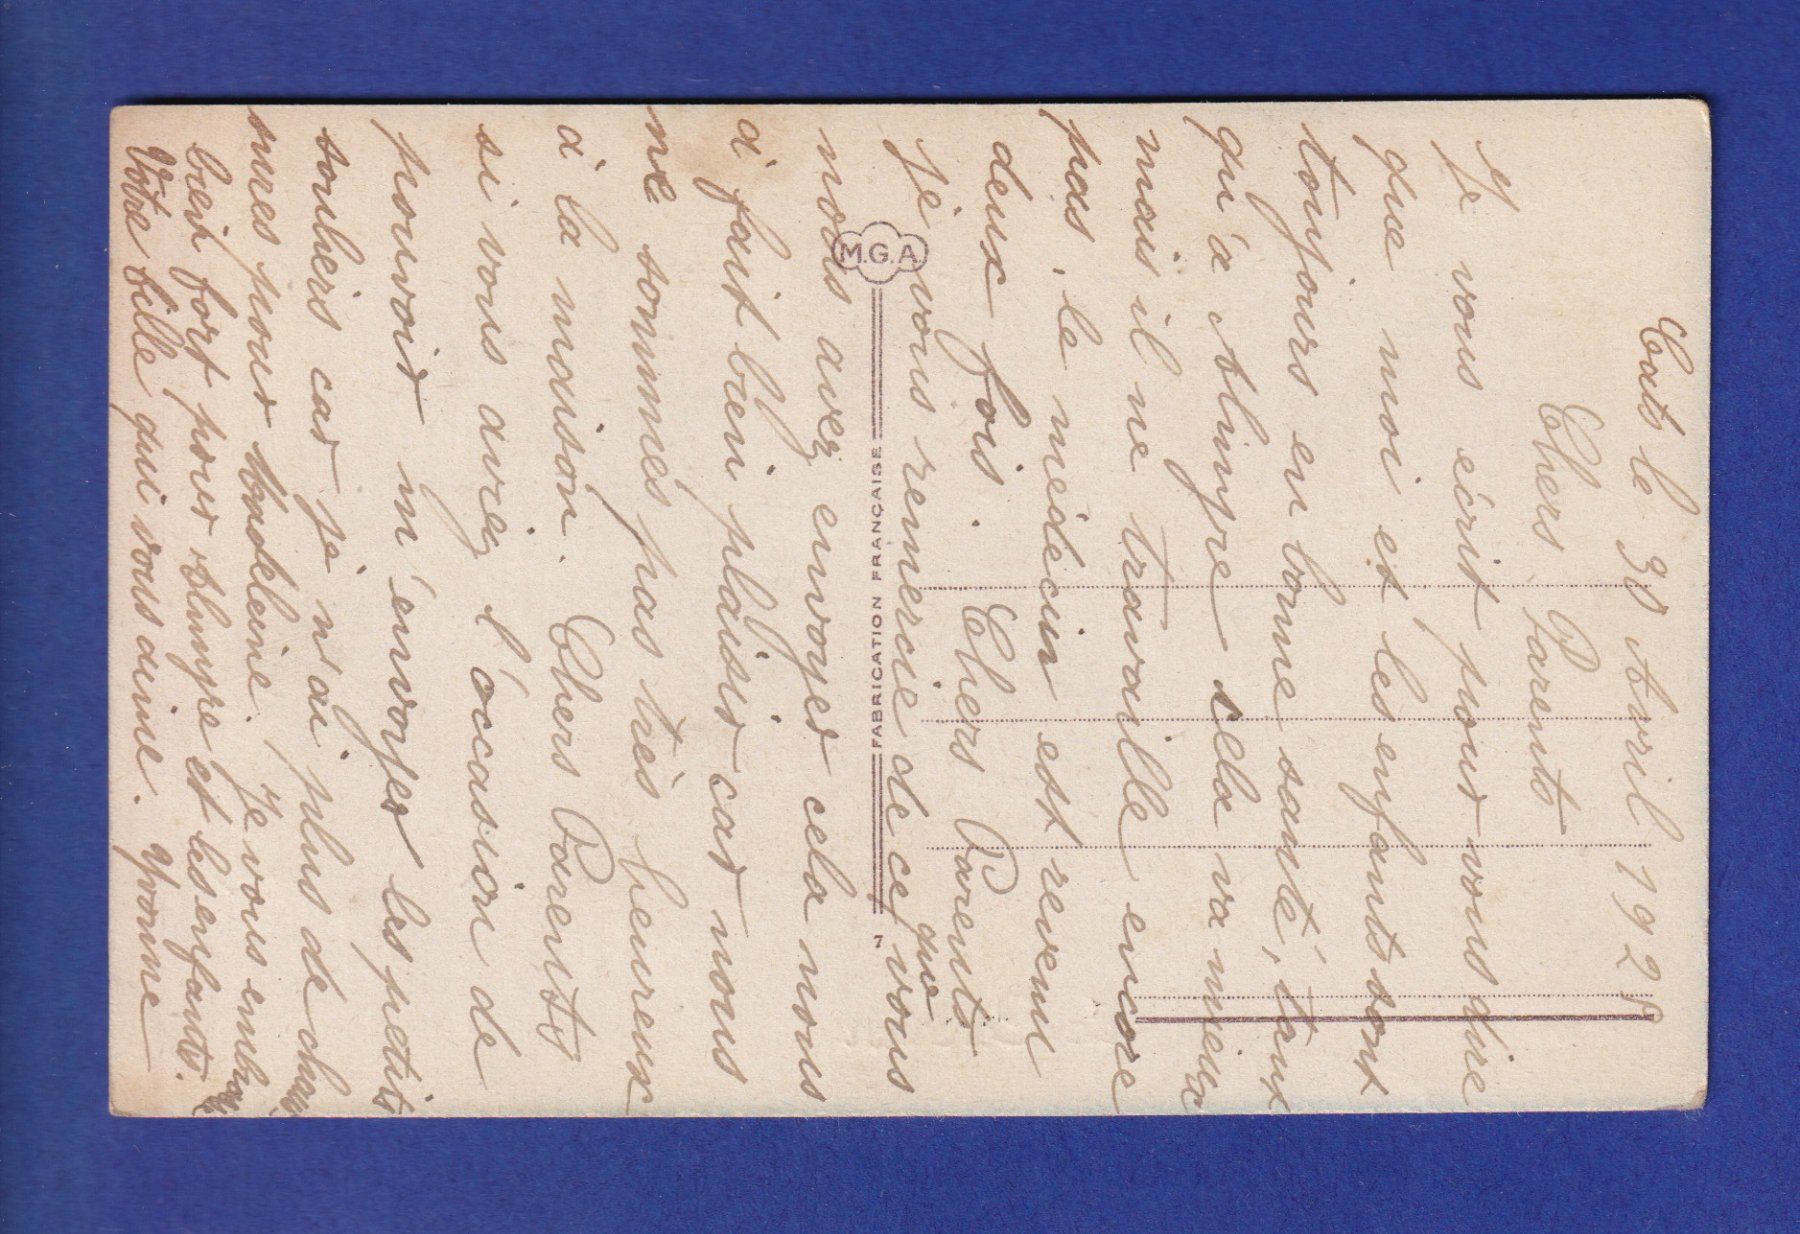 le 30 Avril 192
Chers Parents
Je vous écrit pour vous dire
que moi et les enfants sont
toujours en bonne santé, tant
qu'a Olimpe cela va mieux
mais il ne travaille encore
pas. le médecin est revenu
deux fois. Chers Parents
je vous remercie de ce que vous
nous avez envoyer cela nous
a fait bien plaisir car nous
ne sommes pas très heureux
à la maison. Chers Parents
si vous avez l'ócasion de
pouvoir m'envoyer les petits
souliers car je n'ai plus de
sures pour Madeleine. Je vous embrasse
bien fort pour Olimpe et les enfants.
Votre fille qui vous aime. Yvonne
M.G.A.
FABRICATION FRANÇAISE
7